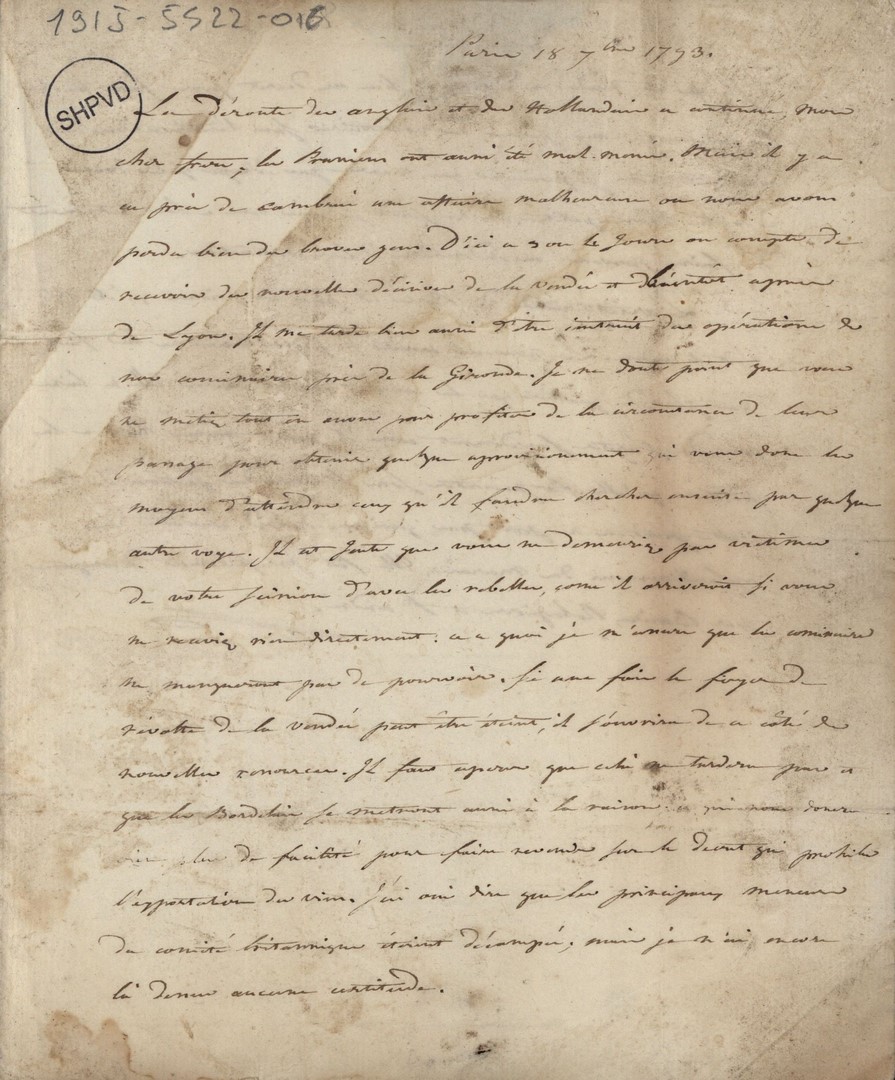 1915-5522-016
SHPVD
Paris 18 7bre 1793.
La déroute des anglais et des Hollandais a continué, mon
cher frere, les Prussiens ont aussi été mal-menés. Mais il y a
eu près de Cambrai une affaire malheureuse ou nous avons
perdu bien des braves gens. D'ici a 3 ou 4 jours on compte de
recevoir des nouvelles décisives de la vendée et bientôt après
de Lyon. Il me tarde bien aussi d'être instruit des opérations de
nos comissaires près de la Gironde. Je ne doute point que vous
ne metiez tout en œuvre pour profiter de la circonstance de leur
passage pour obtenir quelque aprovisionement qui vous done les
moyens d'attendre ceux qu'il faudra chercher ensuite par quelque
autre voye. Il est juste que vous ne demeuriez pas victimes
de votre scission d'avec les rebelles, come il arriveroit si vous
ne receviez rien directement: ce a quoi je m'assure que les comissaires
ne manqueront pas de pourvoir. Si une fois le foyer de
révolte de la vendée peut être éteint, il s'ouvrira de ce côté de
nouvelles ressources. Il faut esperer que cela ne tardera pas et
que les Bordelais se metront aussi à la raison: ce qui nous donera
plus de facilité pour faire revenir sur le decret qui prohibe
l'exportation des vins. J'ai oui dire que les principaux meneurs
du comité britannique étoient décampés; mais je n'ai encore
là dessus aucune certitude.